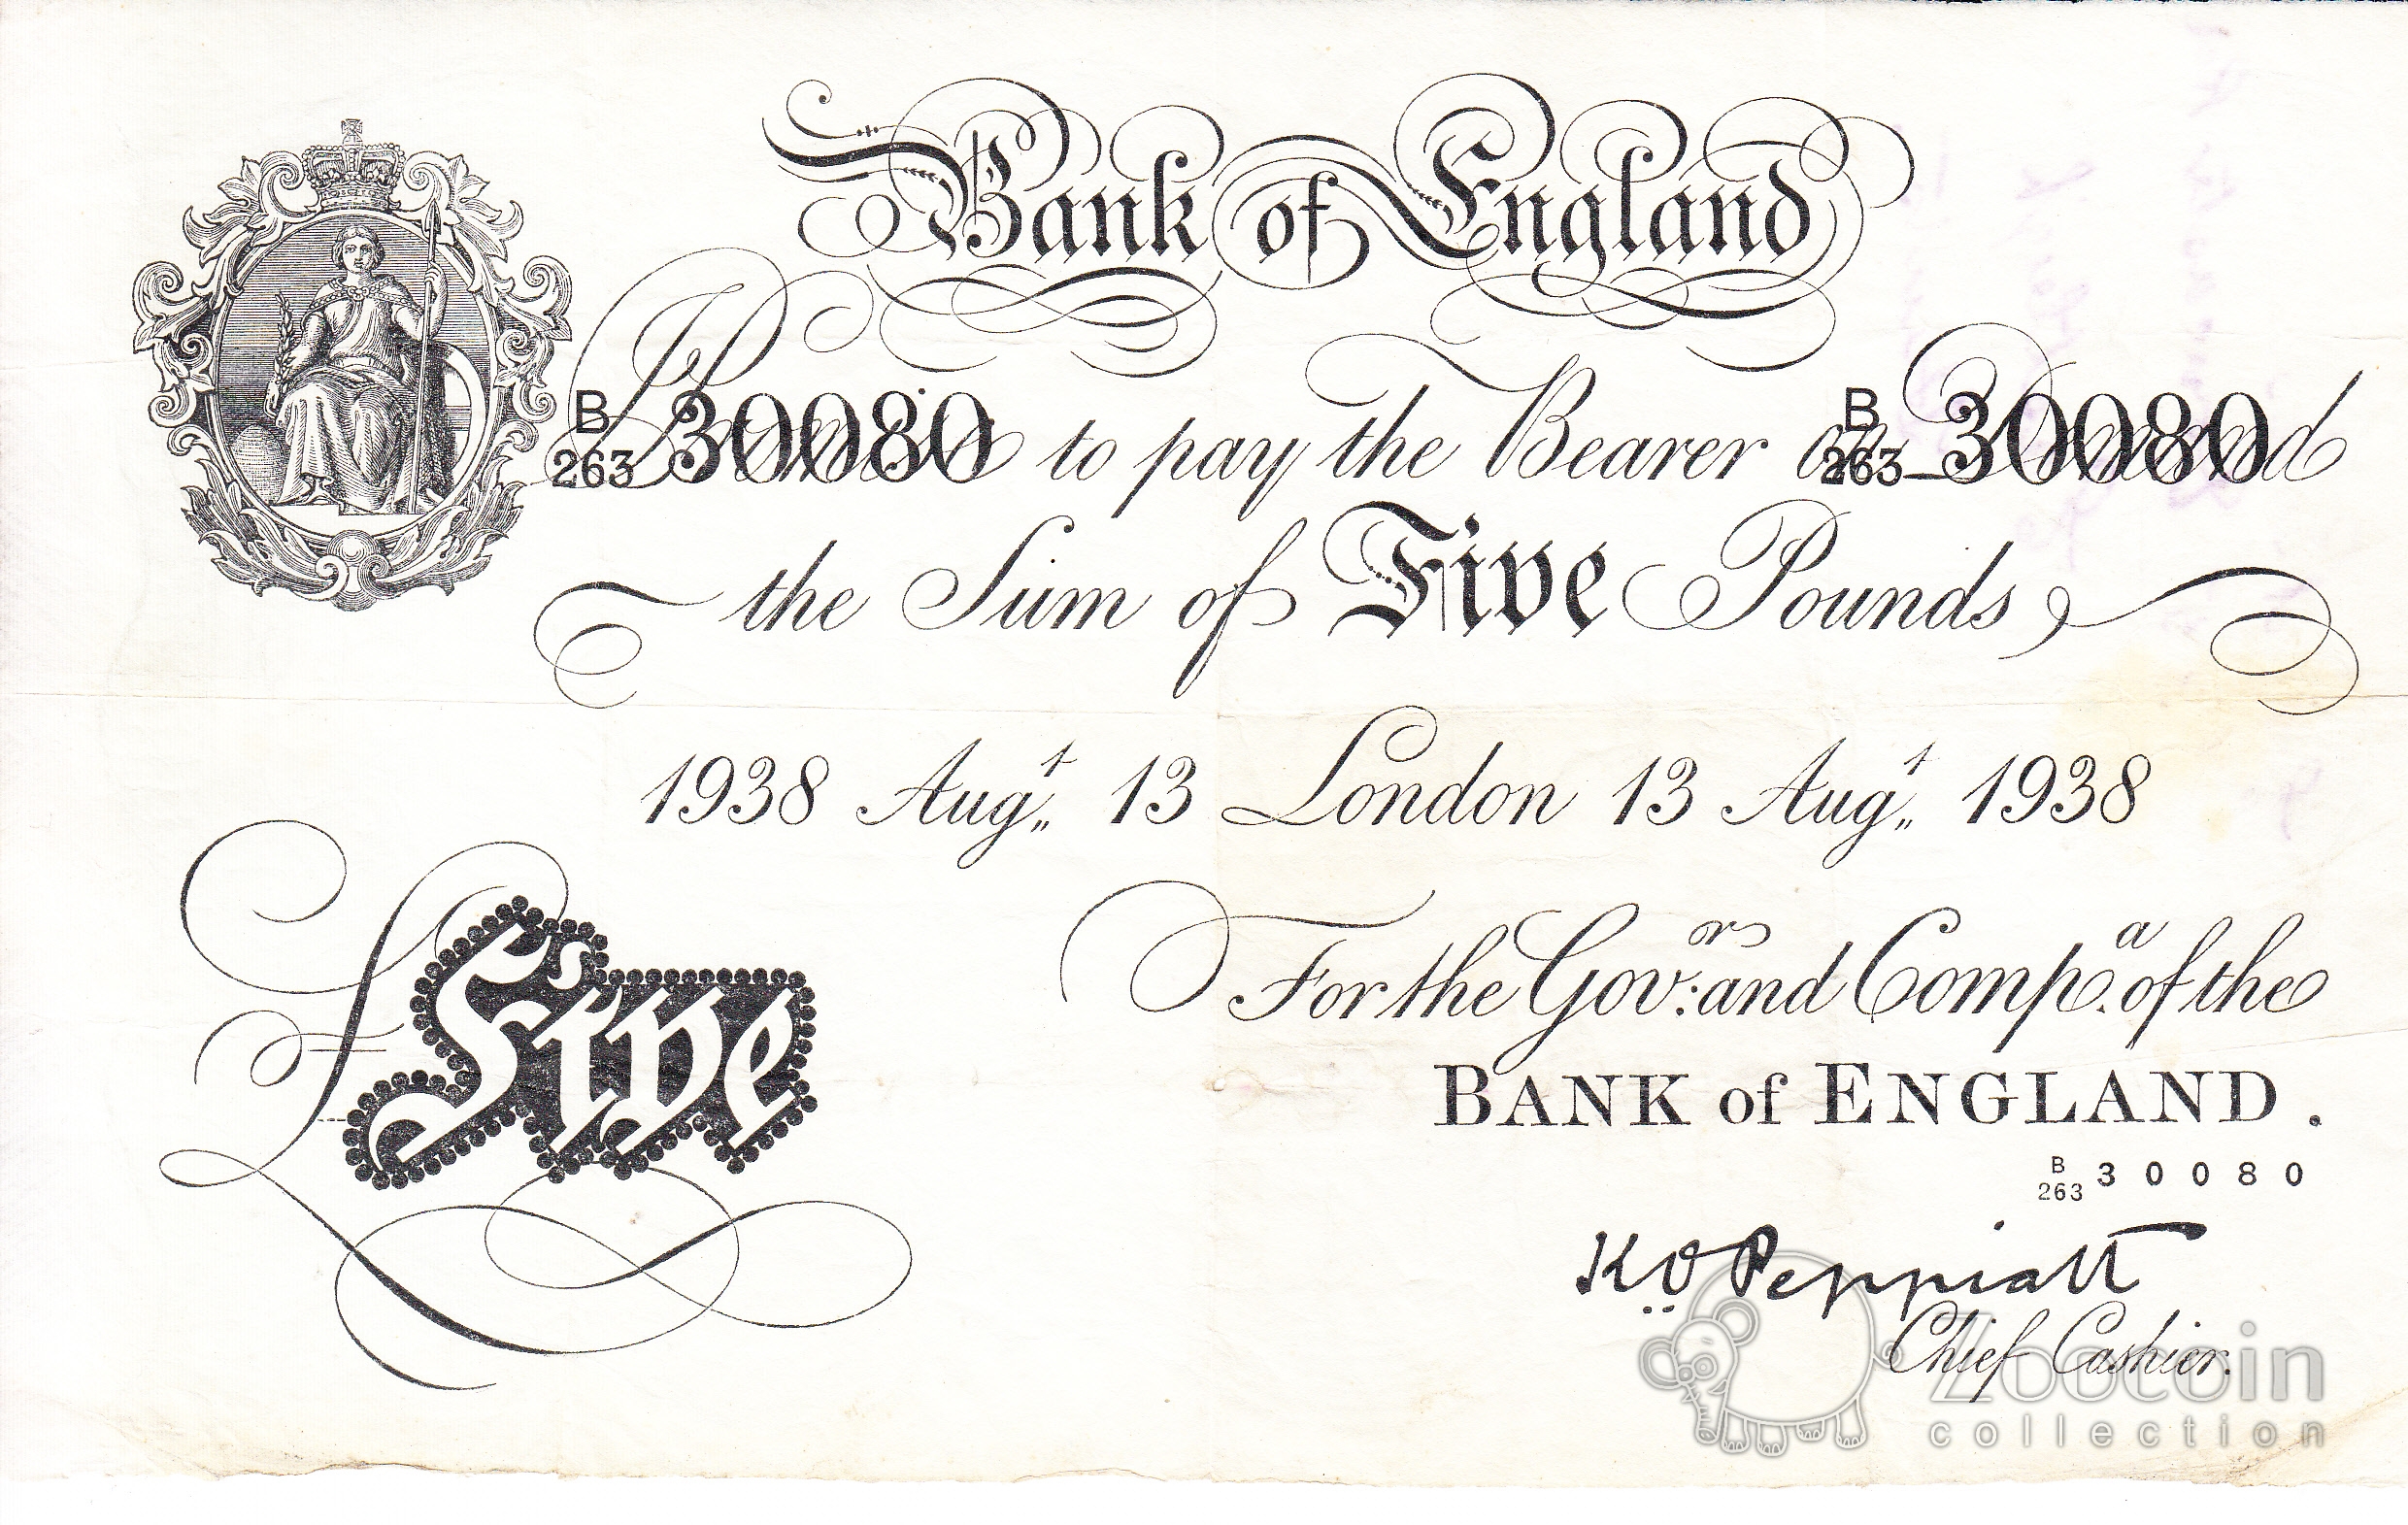 Bank of England
B 263 30080 Promise to pay the Bearer on Demand B 263 30080
the Sum of Five Pounds
1938 Augt 13 London 13 Augt 1938
For the Govors and Compa of the
Five
BANK of ENGLAND.
B 263 30080
K O Peppiatt
Chief Cashier.
Zoocoin
collection